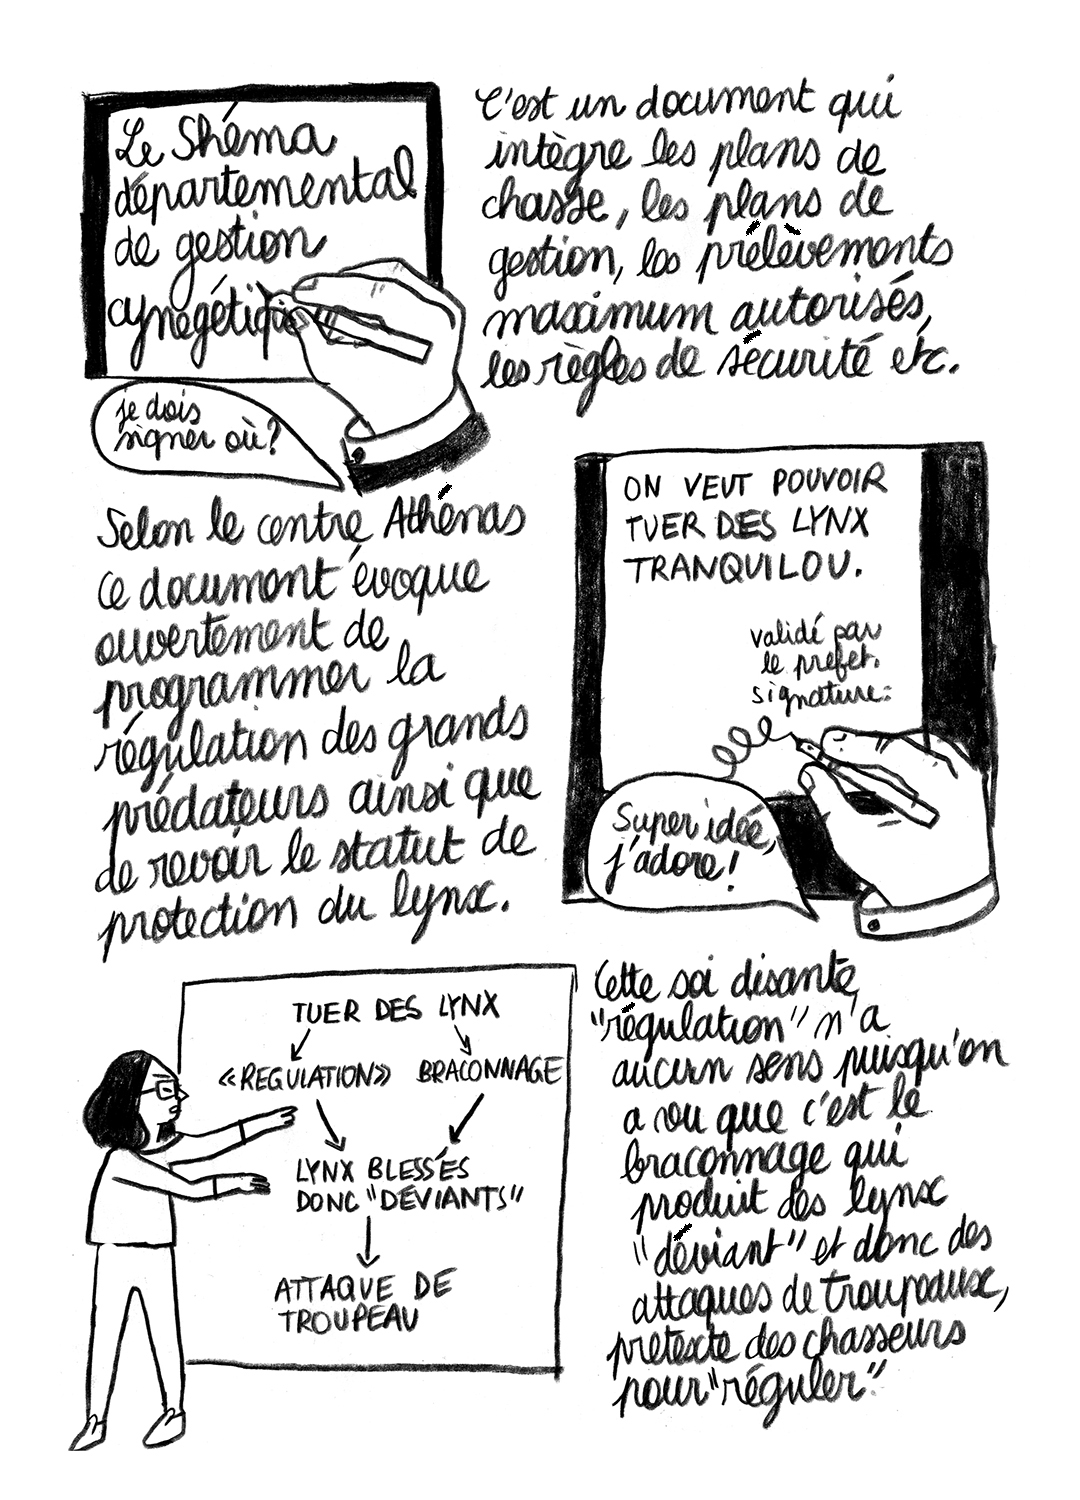 Le Shéma
départemental
de gestion
cynegétique
C'est un document qui
intègre les plans de
chasse, les plans de
gestion, les prélèvements
maximum autorisés,
les règles de sécurité etc.
je dois
signer où?
Selon le centre Athénas
ce document évoque
ouvertement de
programmer la
régulation des grands
prédateurs ainsi que
de revoir le statut de
protection du lynx.
ON VEUT POUVOIR
TUER DES LYNX
TRANQUILOU.
validé par
le prefet.
signature:
Super idée,
j'adore!
TUER DES LYNX
«REGULATION» BRACONNAGE
LYNX BLESSÉS
DONC "DÉVIANTS"
ATTAQUE DE
TROUPEAU
Cette soi disante
"régulation" n'a
aucun sens puisqu'on
a vu que c'est le
braconnage qui
produit des lynx
"déviant" et donc des
attaques de troupeaux,
pretexte des chasseurs
pour "réguler"